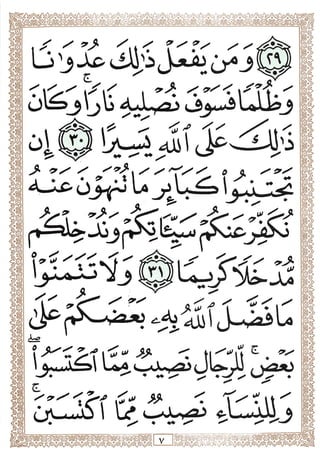 ﴿٢٩﴾ وَمَن يَفْعَلْ ذَٰلِكَ عُدْوَٰنًا
وَظُلْمًا فَسَوْفَ نُصْلِيهِ نَارًا ۚ وَكَانَ
ذَٰلِكَ عَلَى ٱللَّهِ يَسِيرًا ﴿٣٠﴾ إِن
تَجْتَنِبُوا۟ كَبَآئِرَ مَا تُنْهَوْنَ عَنْهُ
نُكَفِّرْ عَنكُمْ سَيِّـَٔاتِكُمْ وَنُدْخِلْكُم
مُّدْخَلًا كَرِيمًا ﴿٣١﴾ وَلَا تَتَمَنَّوْا۟
مَا فَضَّلَ ٱللَّهُ بِهِۦ بَعْضَكُمْ عَلَىٰ
بَعْضٍ ۚ لِّلرِّجَالِ نَصِيبٌ مِّمَّا ٱكْتَسَبُوا۟ ۖ
وَلِلنِّسَآءِ نَصِيبٌ مِّمَّا ٱكْتَسَبْنَ ۚ
٧